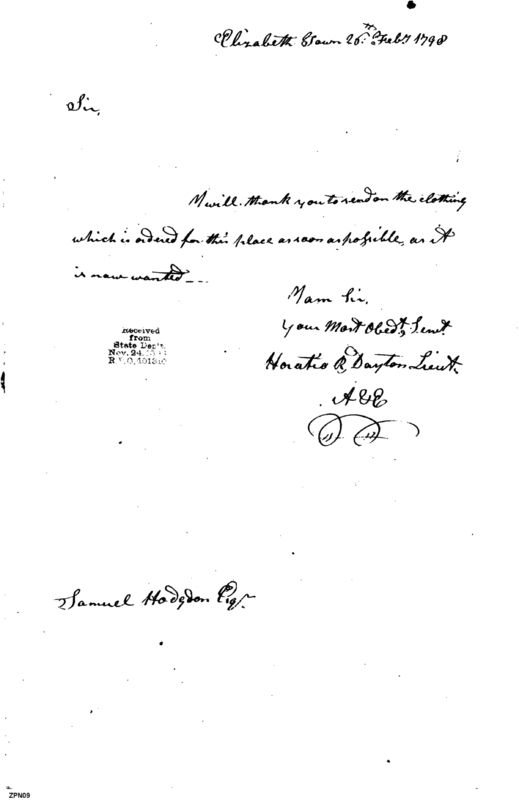 Elizabeth Town 26.th Feby 1798
Sir,
I will thank you to send on the clothing
which is ordered for this place as soon as possible, as it
is now wanted
I am Sir,
Your Most Obedt. Servt.
Horatio R. Dayton Lieut.
A & E
Received
from
State Dep't.
Nov. 24,
Samuel Hodgdon Esqr.
ZPN09